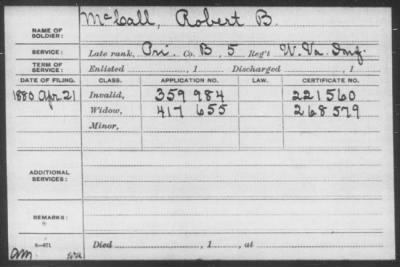 NAME OF SOLDIER: McCall, Robert B.
SERVICE: Late rank, Pri. Co. B, 5 Reg't W. Va. Inf.
TERM OF SERVICE: Enlisted , 1 Discharged , 1
DATE OF FILING. CLASS. APPLICATION NO. LAW. CERTIFICATE NO.
1880 Apr. 21 Invalid, 359 984 221560
Widow, 417 655 268579
Minor,
ADDITIONAL SERVICES:
REMARKS:
Died , 1 , at